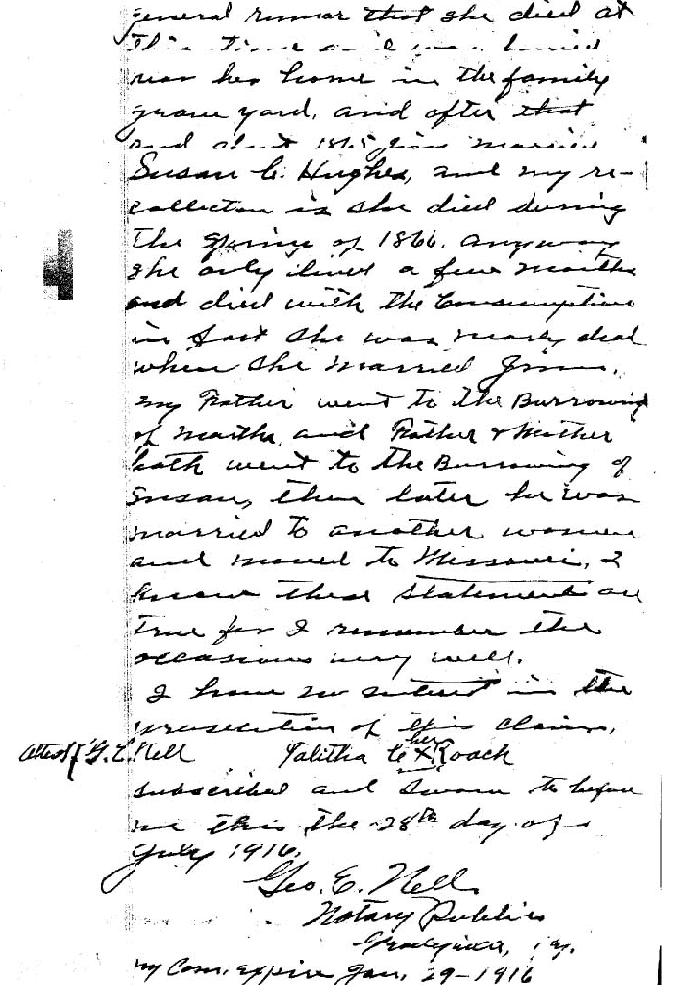 general rumor that she died at
This time and was buried
near her home in the family
grave yard, and after that
and about 1865 Jim married
Susan C. Hughes, and my re-
collection is she died during
the Spring of 1866. anyway
she only lived a few months
and died with the Consumption
in fact she was nearly dead
when she married Jim.
my Father went to the Burrowing
of Martha, and Father & Mother
both went to the Burrowing of
Susan, then later he was
married to another women
and moved to Missouri, I
know these statements are
true for I remember the
occasions very well.
I have no interest in the
prosecution of this claim.
Attest G. E. Nell Talitha C her X Roach
subscribed and Sworn to before
me this the 28th day of
July 1916.
Geo. E. Nell
Notary Public
Gradyville, Ky.
my Com. expire Jan. 29-1916